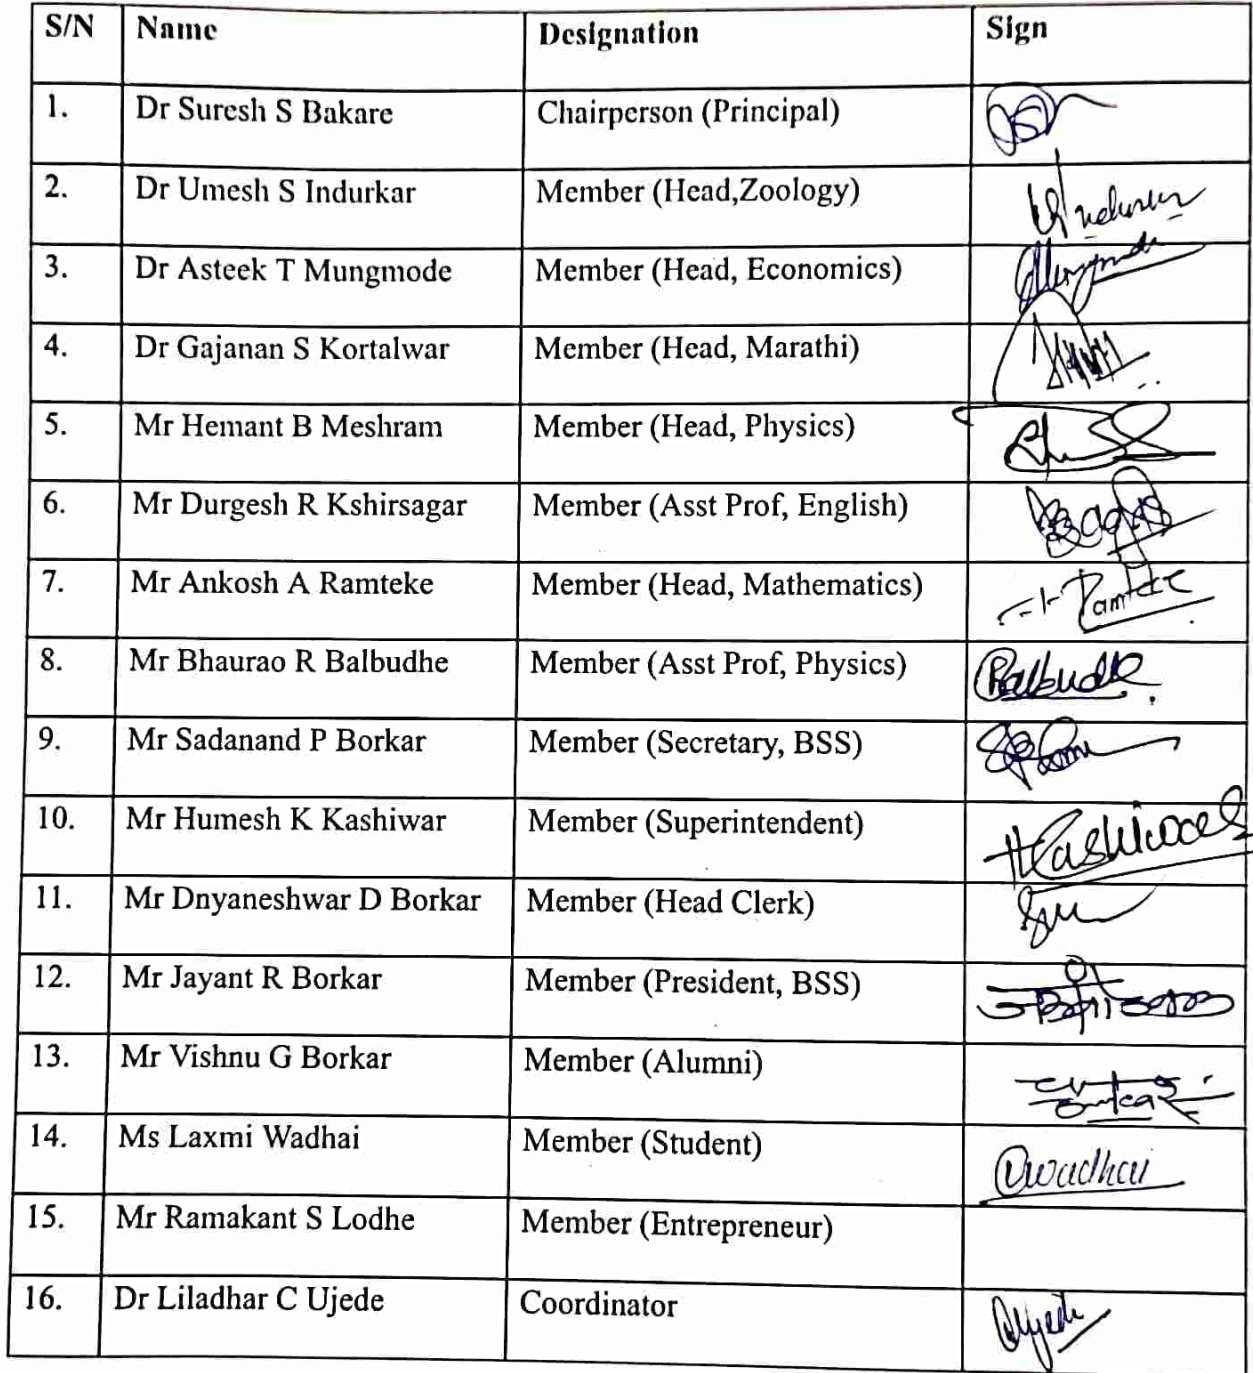 S/N Name Designation Sign
1. Dr Suresh S Bakare Chairperson (Principal)
2. Dr Umesh S Indurkar Member (Head,Zoology)
3. Dr Asteek T Mungmode Member (Head, Economics)
4. Dr Gajanan S Kortalwar Member (Head, Marathi)
5. Mr Hemant B Meshram Member (Head, Physics)
6. Mr Durgesh R Kshirsagar Member (Asst Prof, English)
7. Mr Ankosh A Ramteke Member (Head, Mathematics) Ramteke
8. Mr Bhaurao R Balbudhe Member (Asst Prof, Physics) Balbudhe
9. Mr Sadanand P Borkar Member (Secretary, BSS)
10. Mr Humesh K Kashiwar Member (Superintendent) HKashiwar
11. Mr Dnyaneshwar D Borkar Member (Head Clerk)
12. Mr Jayant R Borkar Member (President, BSS)
13. Mr Vishnu G Borkar Member (Alumni)
14. Ms Laxmi Wadhai Member (Student) Wadhai
15. Mr Ramakant S Lodhe Member (Entrepreneur)
16. Dr Liladhar C Ujede Coordinator